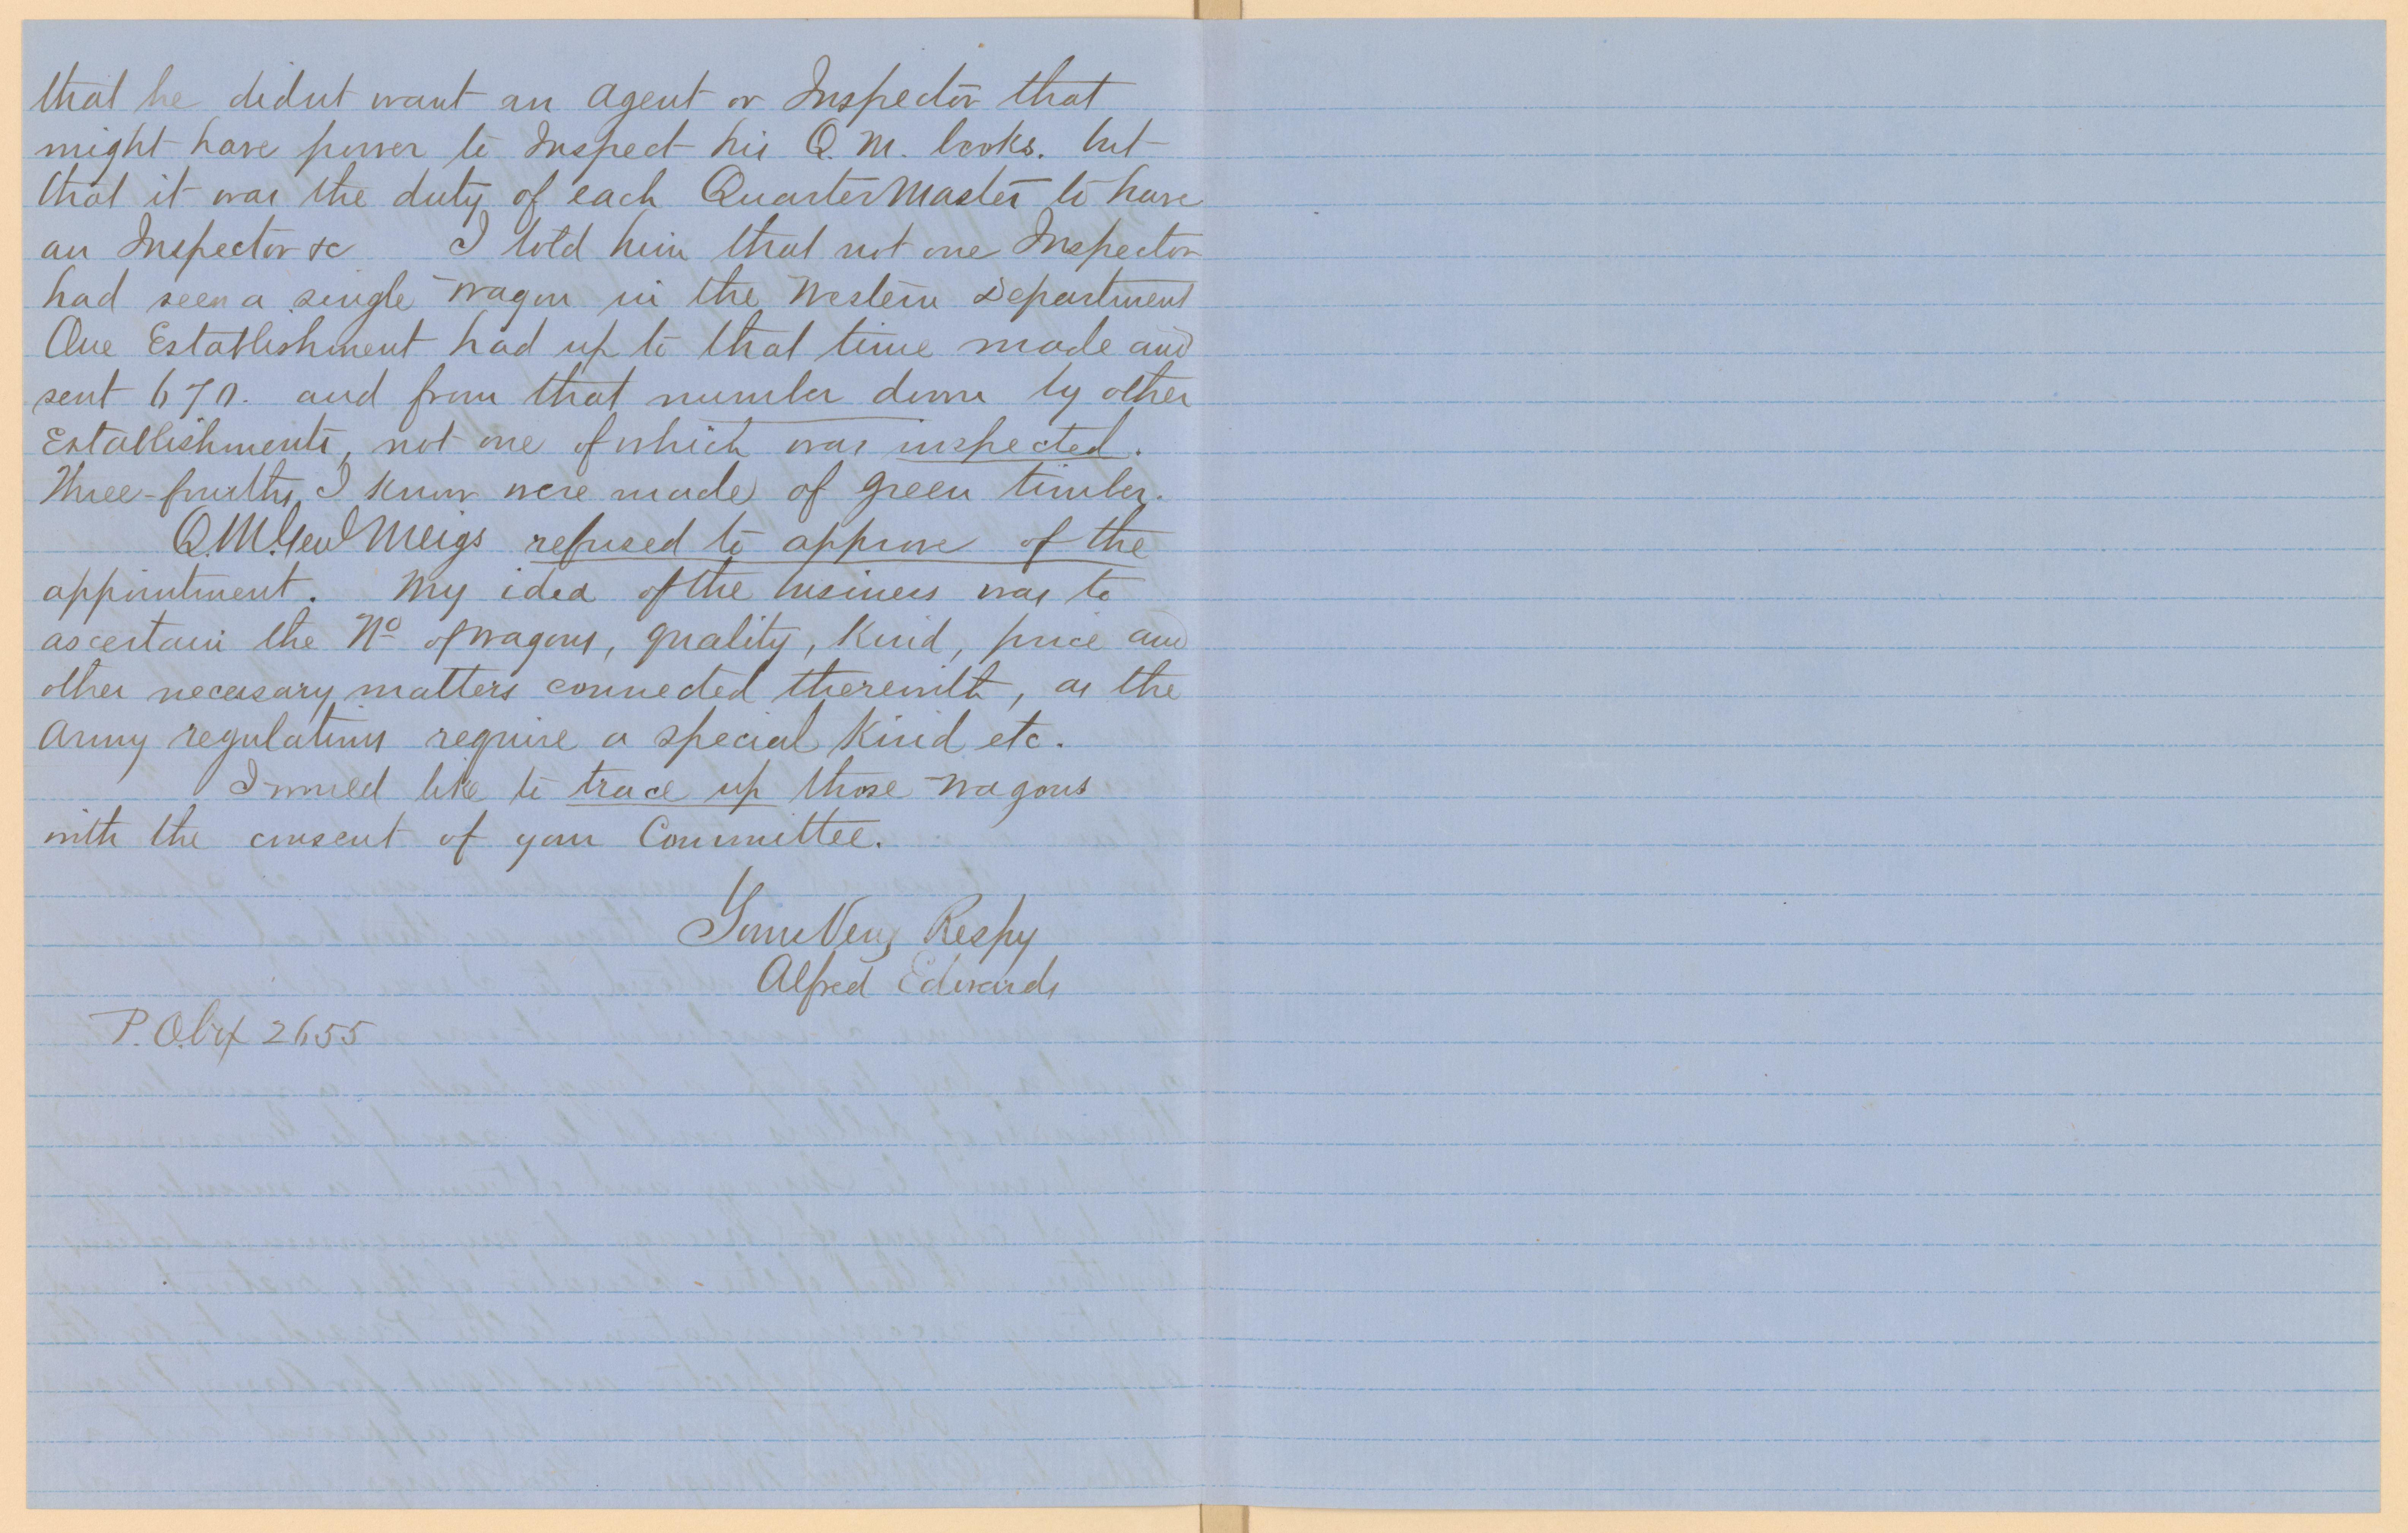 that he didnt want an agent or Inspector that
might have power to Inspect his Q. M. books. but
that it was the duty of each QuarterMaster to have
an Inspector &c I told him that not one Inspector
had seen a single wagon in the Western Department
One Establishment had up to that time made and
sent 670. and from that number down by other
Establishments, not one of which was inspected.
Three-fourths, I know were made of green timber.
Q.M.Genl Meigs refused to approve of the
appointment. My idea of the business was to
ascertain the No of wagons, quality, kind, price and
other necessary matters connected therewith, as the
Army regulations require a special kind etc.
I would like to trace up those wagons
with the consent of your Committee.
Yours Very Respy
Alfred Edwards
P.O. box 2655